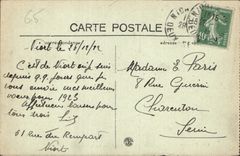 65
CARTE POSTALE
Niort le 28/12/22
C'est de Niort
depuis
jours que je
vous envoie meilleurs
vœux pour 1923
Affectueux baisers pour
tous
61 rue du Rempart
Niort
Madame L Paris
8 Rue Guérin
Charenton
Seine